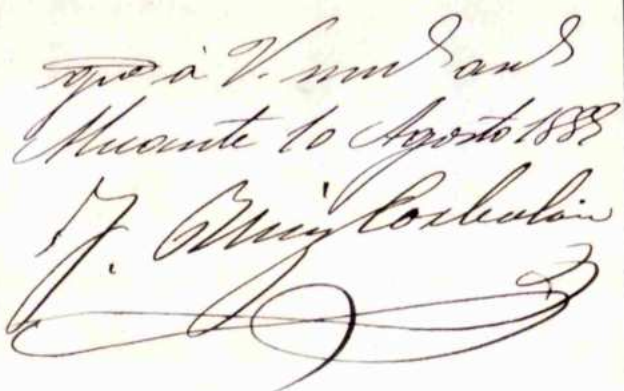 gue à V. muchs ans
Alicante 10 Agosto 1889
J. Ruiz Corbalán